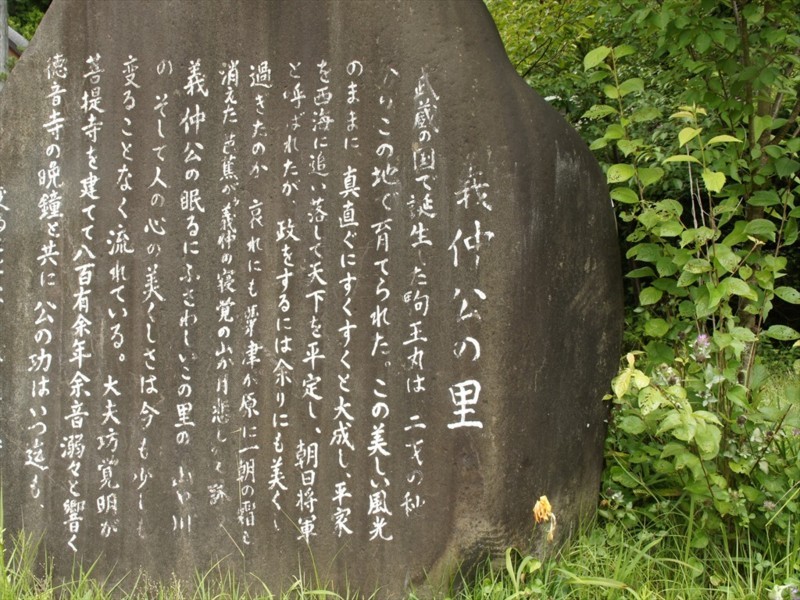 義仲公の里
武蔵の国で誕生した駒王丸は 二才の秋
からこの地で育てられた。この美しい風光
のままに 真直ぐにすくすくと大成し、平家
を西海に追い落して天下を平定し、朝日将軍
と呼ばれたが、政をするには余りにも美くし
過ぎたのか 哀れにも粟津が原に一朝の霜と
消えた 芭蕉が"義仲の寝覚の山か月悲し"
義仲公の眠るにふさわしいこの里の 山や川
の そして人の心の美くしさは今も少しも
変ることなく 流れている。大夫坊覚明が
菩提寺を建てて八百有余年余音溺々と響く
徳音寺の晩鐘と共に 公の功はいつ迄も、